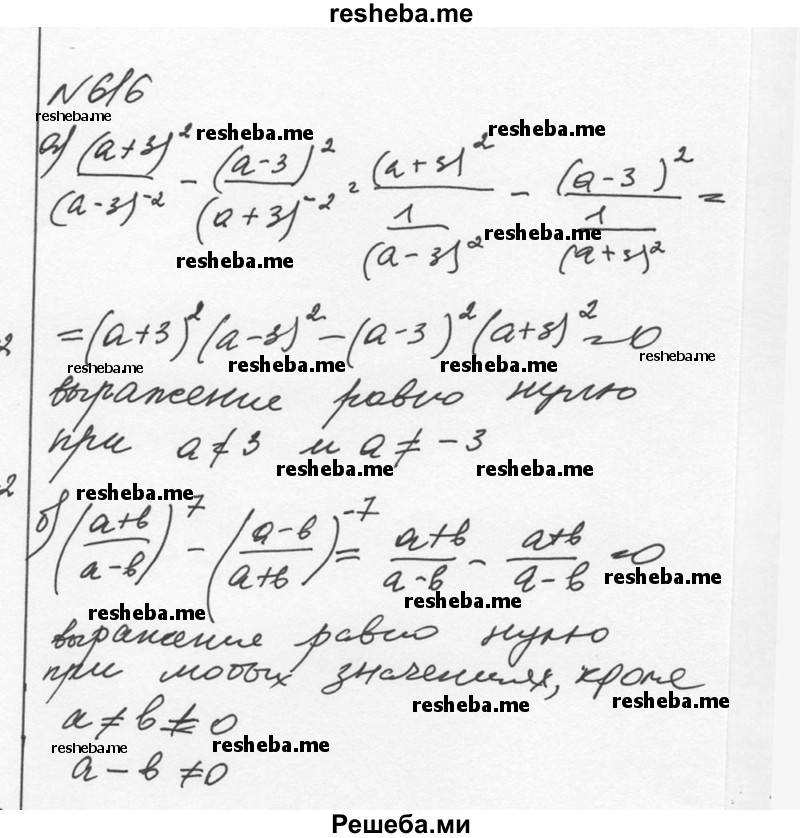 resheba.me
№616
resheba.me
а) (a+3)² / (a-3)⁻² - (a-3)² / (a+3)⁻² = (a+3)² / (1 / (a-3)²) - (a-3)² / (1 / (a+3)²) =
resheba.me resheba.me
resheba.me resheba.me
= (a+3)² (a-3)² - (a-3)² (a+3)² = 0
resheba.me resheba.me resheba.me resheba.me
выражение равно нулю
при a ≠ 3 и a ≠ -3
resheba.me resheba.me
resheba.me
б) ((a+b) / (a-b))⁷ - ((a-b) / (a+b))⁻⁷ = (a+b) / (a-b) - (a+b) / (a-b) = 0
resheba.me
resheba.me resheba.me
выражение равно нулю
при любых значениях, кроме
resheba.me resheba.me
a ≠ b ≠ 0
resheba.me resheba.me
a - b ≠ 0
Решеба.ми